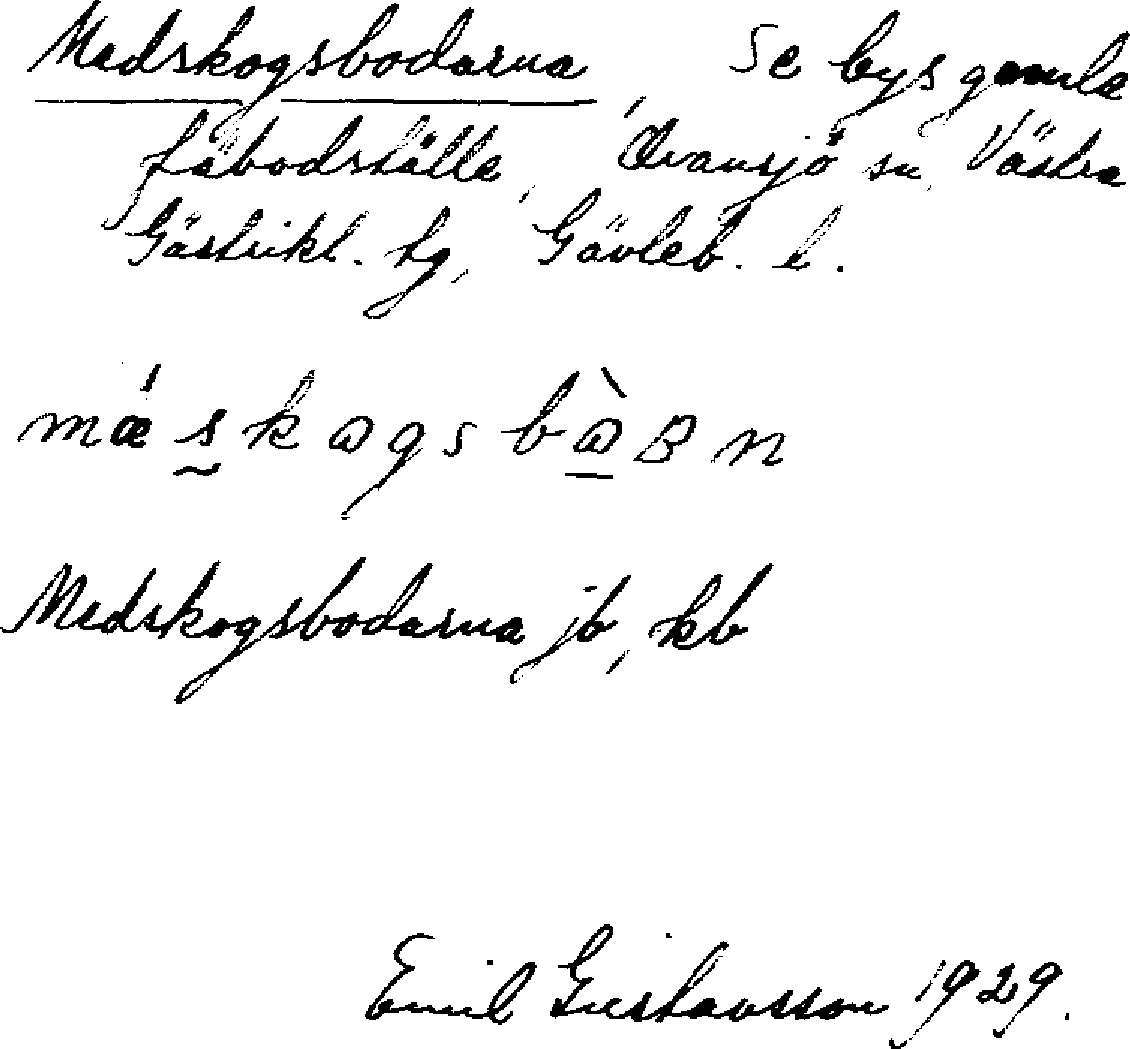 Medskogsbodarna, Se bys gamla
fäbodställe, Ovansjö sn, Västra
Gästrikl. tg, Gävleb. l.
mǽs̰kɷgsbɷ̱̀ʙn
Medskogsbodarna jb, kb
Emil Gustavsson 1929.